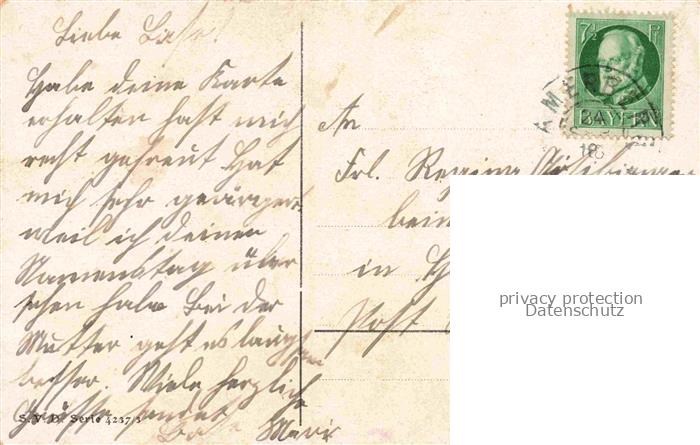 Liebe Base!
Habe deine Karte
erhalten hast mich
recht gefreut Hat
mich sehr geärgert
weil ich deinen
Namenstag über
sehen habe Bei der
Mutter geht es langsam
besser. Viele herzliche
Grüsse sendet
Base Marie
S. V. D. Serie 4237/3
7½ Pf
BAYERN
An
Frl. Regina
beim
in
Post
privacy protection
Datenschutz